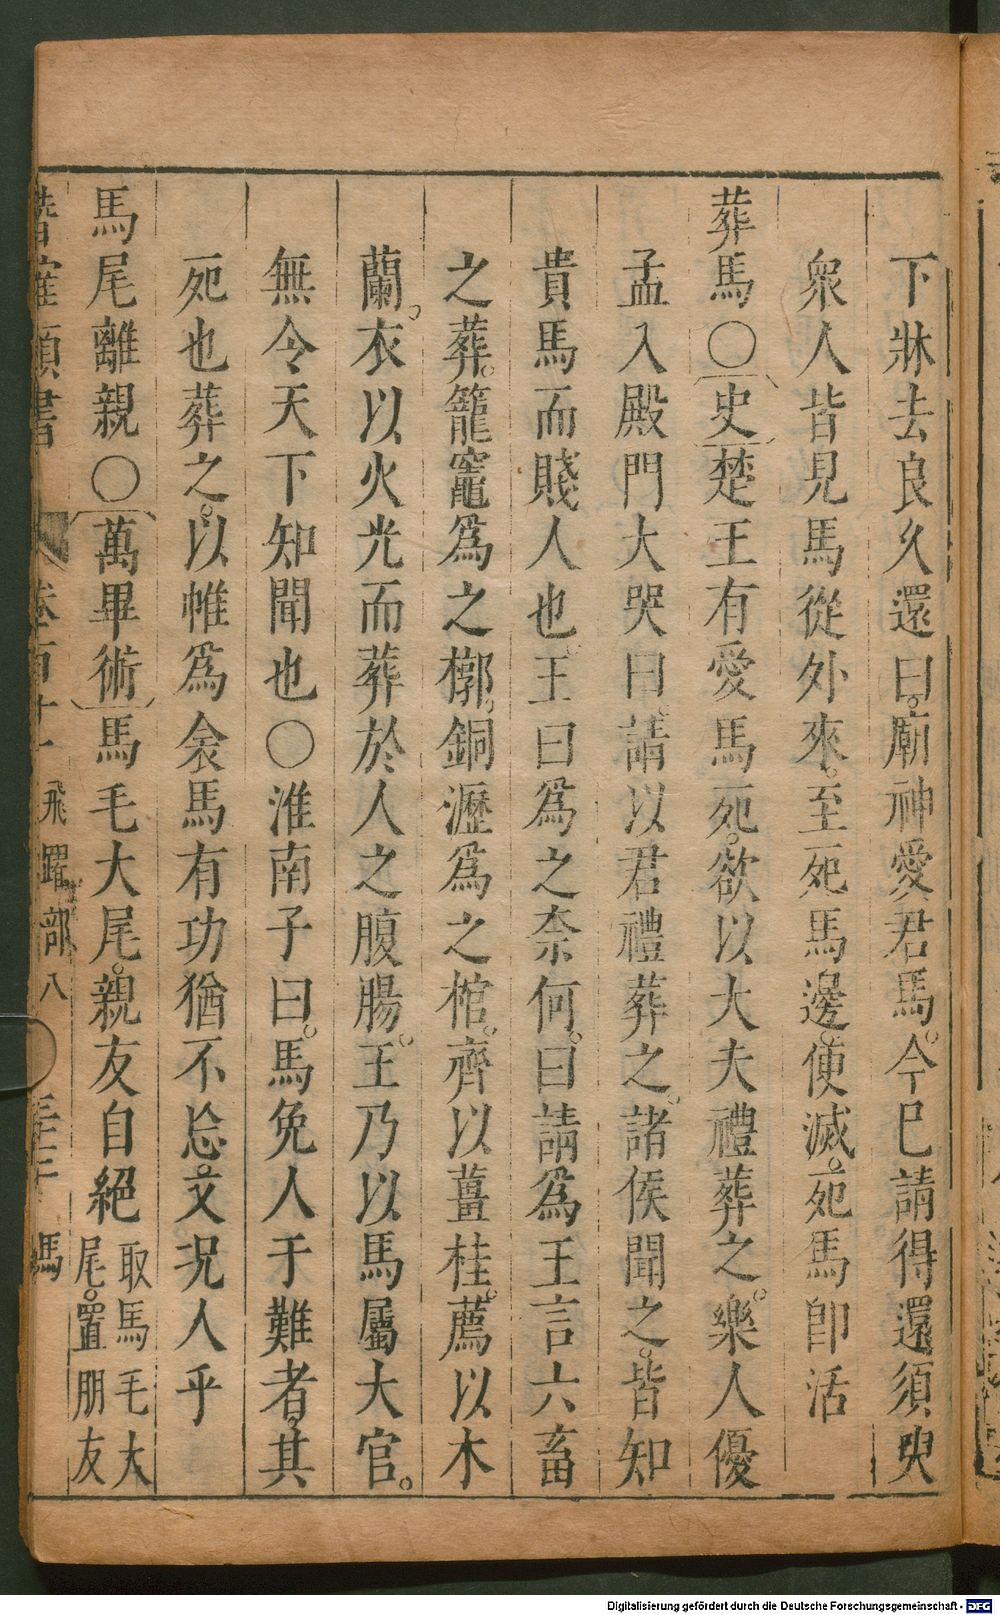 下牀去良久還曰廟神愛君馬今巳請得還須臾
衆人皆見馬從外來至死馬邊便滅死馬卽活
葬馬〇史楚王有愛馬死欲以大夫禮葬之樂人優
孟入殿門大哭曰請以君禮葬之諸侯聞之皆知
貴馬而賤人也王曰爲之柰何曰請爲王言六畜
之葬籠竈爲之槨銅瀝爲之棺齊以薑桂薦以木
蘭衣以火光而葬於人之腹腸王乃以馬屬大官
無令天下知聞也〇淮南子曰馬免人于難者其
死也葬之以帷爲衾馬有功猶不忘又況人乎
馬尾離親〇萬畢術馬毛大尾親友自絕取馬毛大
尾置朋友
類書 卷百十一 飛躍部八 馬
Digitalisierung gefördert durch die Deutsche Forschungsgemeinschaft - DFG